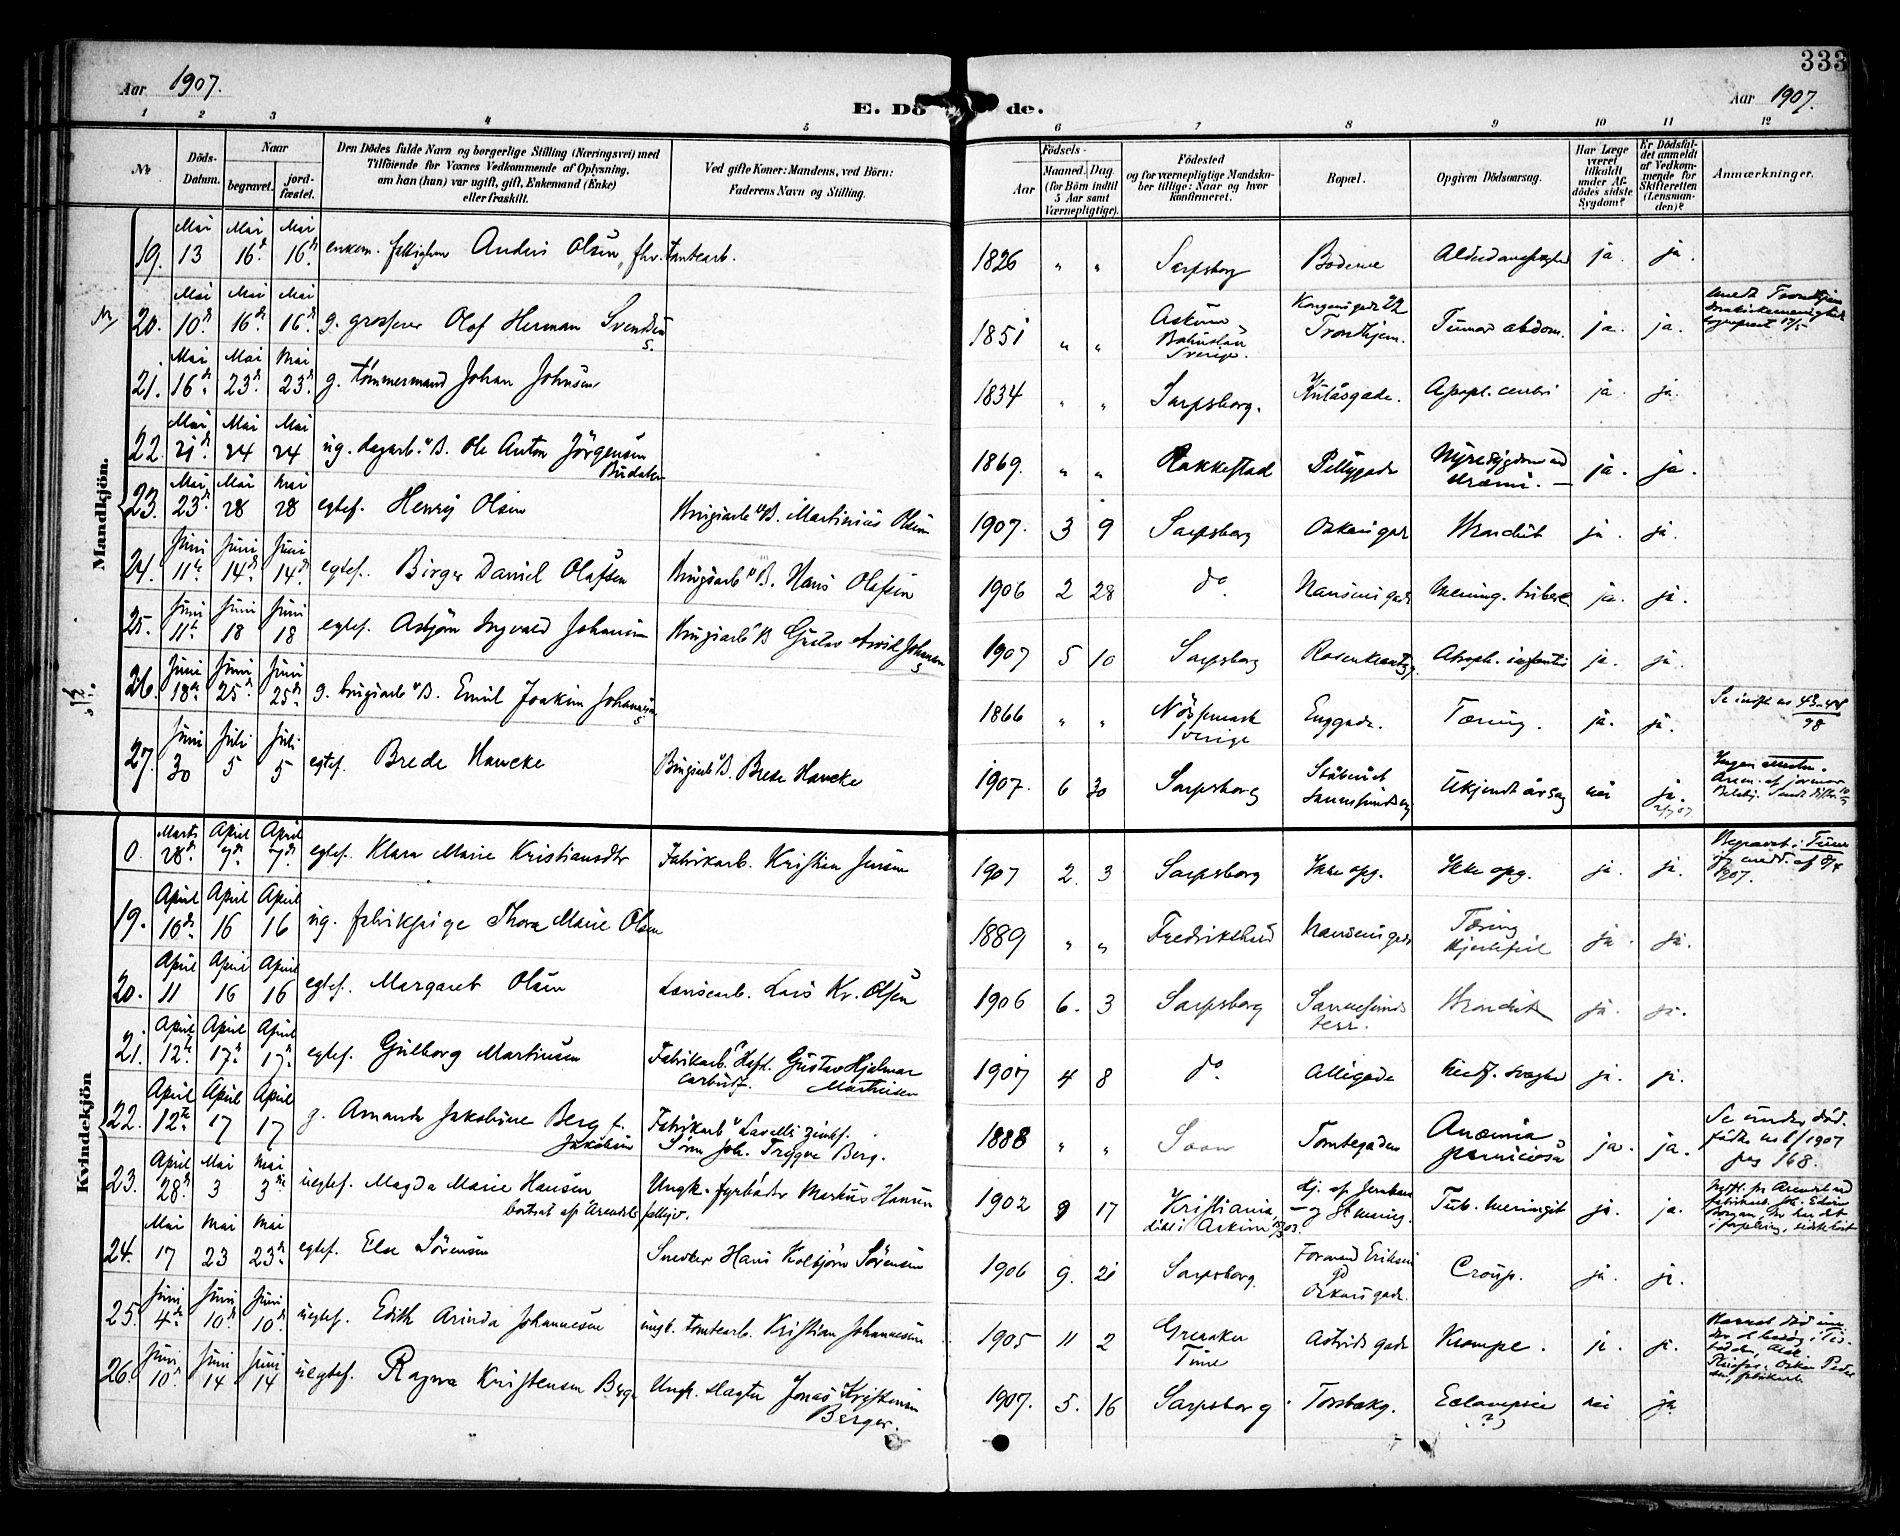 333
Aar 1907.
E. Dö de.
Aar 1907.
1 2 3 4 5 6 7 8 9 10 11 12
No.
Döds-Datum.
Naar
begravet.
jordfæstet.
Den Dödes fulde Navn og borgerlige Stilling (Næringsvei) med
Tilföiende for Voxnes Vedkommende af Oplysning,
om han (hun) var ugift, gift, Enkemand (Enke)
eller fraskilt.
Ved gifte Koner: Mandens, ved Börn:
Faderens Navn og Stilling.
Födsels-
Aar
Maaned. Dag
(for Börn indtil
5 Aar samt
Værnepligtige).
Födested
og for værnepligtige Mandskaber tillige: Naar og hvor
konfirmeret.
Bopæl.
Opgiven Dödsaarsag.
Har Læge
været
tilkaldt
under Afdödes sidste
Sygdom?
Er Dödsfaldet anmeldt
af Vedkommende for
Skifteretten
(Lensmanden)?
Anmærkninger.
Mandkjön.
19. Mai 13 Mai 16d Mai 16d enkem. Anders Olsen, fhv. tomtearb. 1826 " " Sarpsborg ja. ja.
20. Mai 10d Mai 16d Mai 16d g. grosserer Olof Herman Svendsen 1851 " " Askum Bahuslän Sverige. Kongensgade 22 Trondhjem. Tumor abdom. ja. ja.
21. Mai 16d Mai 23d Mai 23d g. tömmermand Johan Johnsen 1834 " " Sarpsborg. Kulåsgade. Apopl. cerebri ja. ja.
22. Mai 21d Mai 24 Mai 24 ug. dagarb. v. B. Ole Anton Jörgensen 1869. " " Rakkestad Nyresygdom ja. ja.
23. Mai 23d Mai 28 Mai 28 egtef. Henry Olsen Brugsarb. v. B. Martinius Olsen 1907. 3 9 Sarpsborg Oskarsgade Bronchit ja. ja.
24. Juni 11te Juni 14d Juni 14d egtef. Birger Daniel Olafsen Brugsarb. v. B. Hans Olafsen 1906 2 28 do. Nansensgade Mening. tuberk. ja. ja.
25. Juni 11t Juni 18 Juni 18 egtef. Asbjörn Ingvald Johansen Brugsarb. v. B. Gustav Arvid Johansen 1907 5 10 Sarpsborg Rosenkrantzg. Atroph. infanti ja. ja.
26. Juni 18de Juni 25d Juni 25d g. brugsarb. v. B. Emil Joakim Johannesen 1866 " " Nössemark Sverige Enggade. Tæring. ja. ja.
27. Juni 30 Juli 5 Juli 5 egtef. Brede Hancke Brugsarb. v. B. Brede Hancke 1907. 6 30 Sarpsborg Ukjendt årsag nei ja.
Kvindekjön
0. Marts 28d April 7d April 7d egtef. Klara Marie Kristiansdtr Fabrikarb. Kristian Jensen 1907 2. 3 Sarpsborg Ikke opg. Ikke opg. ja. ja. Begravet i Tune
1907.
19. April 10d April 16 April 16 ug. fabrikpige Thora Marie Olsen 1889 " " Fredrikshald Nansensgade Tæring Hjertefeil ja. ja.
20. April 11 April 16 April 16 egtef. Margaret Olsen Lars Kr. Olsen 1906 6. 3 Sarpsborg Sannesunds terr. Bronchit ja. ja.
21. April 12te April 17d April 17d egtef. Gulborg Martinsen Fabrikarb. Hafsl. carbidf. Gustav Hjalmar Martinsen 1907 4 8 do. Alleegade ja. ja.
22. April 12te April 17 April 17 g. Amanda Jakobine Berg f. Jakobsen Fabrikarb. v. Sörm Joh. Trygve Berg. 1888 " " Soon Tomtegaden Anæmia perniciosa ja. ja. Se under dödfödte no 6/1907
pag 168.
23. April 28d Mai 3 Mai 3die uegtef. Magda Marie Hansen
bortsat af Arendals fattigv. Ungk. fyrböder Markus Hansen 1902 9 17 Kristiania, döbt i Askim Tub. meningit ja. ja.
24. Mai 17 Mai 23 Mai 23d egtef. Else Sörensen Snedker Hans Kolbjörn Sörensen 1906 9. 21 Sarpsborg. Formand Eriksens gd Oskarsgade. Croup. ja. ja.
25. Juni 4de Juni 10d Juni 10d uegtef. Edith Arinda Johannesen ungk. tomtearb. Kristian Johannesen 1905 11 2 Greaaker Tune Astridsgade Krampe. ja. ja.
26. Juni 10d Juni 14 Juni 14 uegtef. Ragna Kristensen Berger Ungk. slagter Jonas Kristensen Berger. 1907. 5. 16 Sarpsborg Torsbækg. Eclampsia (?) nei ja